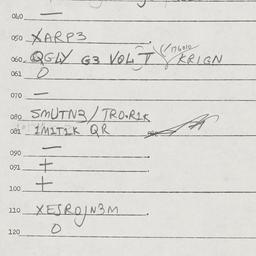 040 —
050 XARP3
060 QGLY G3 VOL T KRIGN
061 O
070 —
080 SMUTN3/TRO.R1K
081 1M1T1K QR
090 —
091 +
100 +
110 XEJROJN3M
120 O